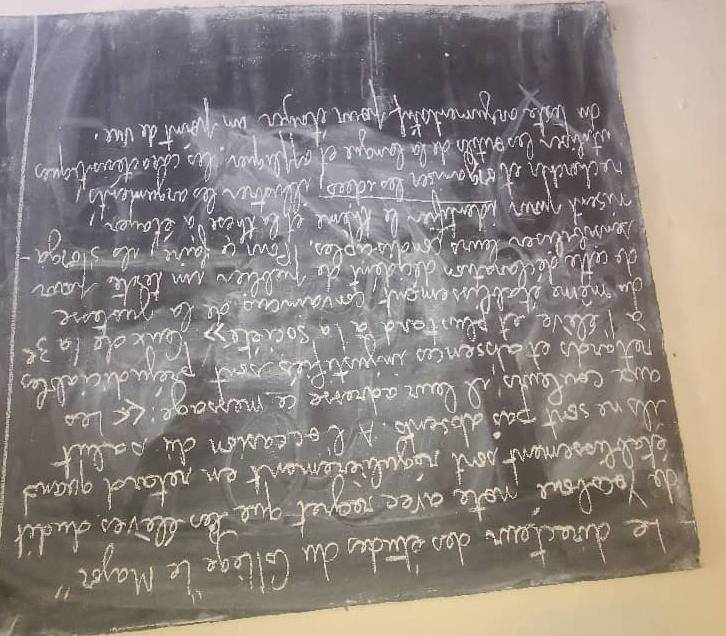 Le directeur des études du Collège "Le Mayor"
de Yocoboué note avec regret que les élèves dudit
établissement sont régulièrement en retard quand
ils ne sont pas absents. A l'occasion du salut
aux couleurs, il leur adresse ce message: << Les
retards et absences injustifiés sont préjudiciables
à l'élève et plus tard à la société >> Ceux de la 3e
du même établissement, convaincus de la justesse
de cette déclaration décident de publier un texte pour
sensibiliser leurs condisciples. Pour ce faire, ils s'orga-
nisent pour identifier le thème et la thèse à étayer,
rechercher et organiser les idées, illustrer les arguments,
utiliser les outils de la langue et appliquer les caractéristiques
du texte argumentatif pour étayer un point de vue.